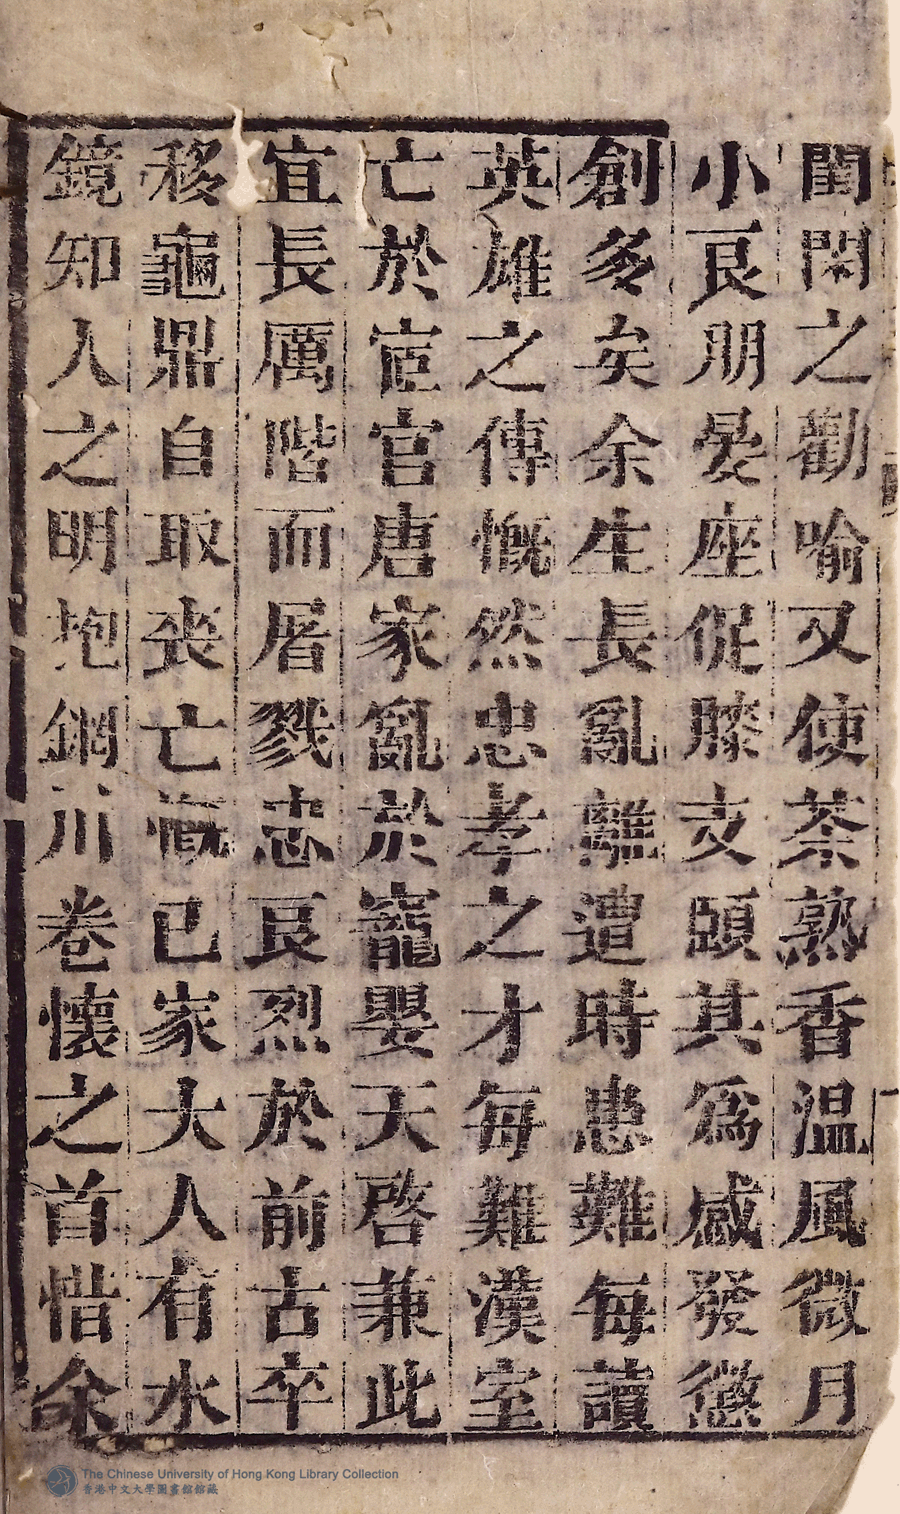 閨閑之勸喻又使茶熟香温風微月
小良朋晏座促膝支頤其爲感發懲
創多矣余生長亂離遭時患難每讀
英雄之傳慨然忠孝之才每難漢室
亡於宦官唐家亂於寵嬰天啓兼此
宜長厲階而屠戮忠良烈於前古卒
移龜鼎自取喪亡慨已家大人有水
鏡知人之明抱鋼川卷懷之首惜余
The Chinese University of Hong Kong Library Collection
香港中文大學圖書館館藏